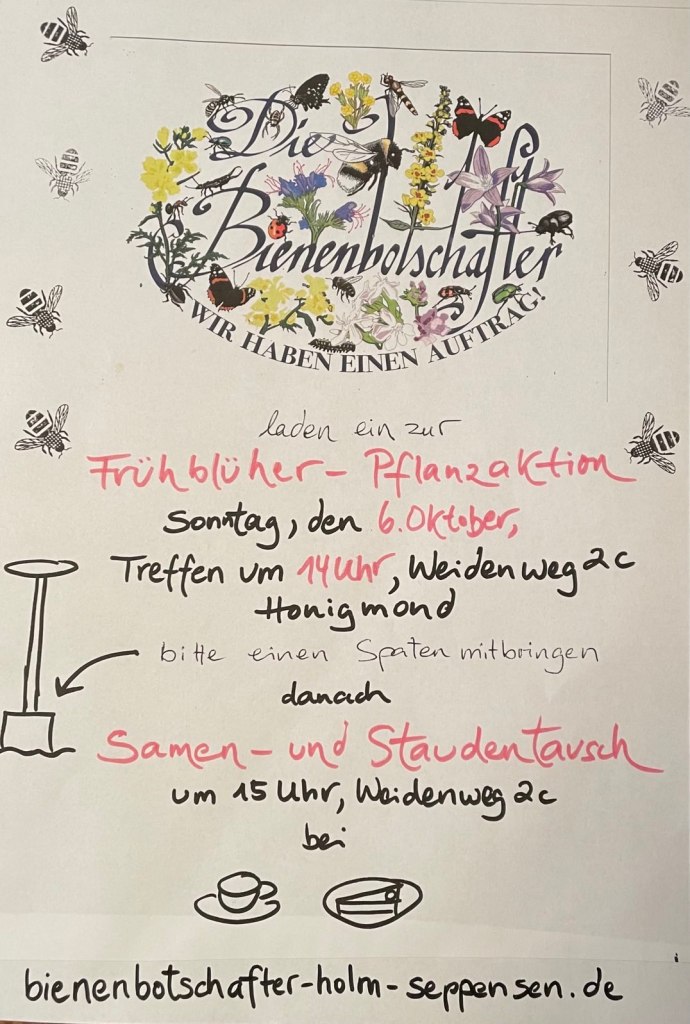 Die
Bienenbotschafter
WIR HABEN EINEN AUFTRAG!
laden ein zur
Frühblüher - Pflanzaktion
Sonntag, den 6. Oktober,
Treffen um 14 Uhr, Weidenweg 2c
Honigmond
bitte einen Spaten mitbringen
danach
Samen - und Staudentausch
um 15 Uhr, Weidenweg 2c
bei
bienenbotschafter-holm-seppensen.de